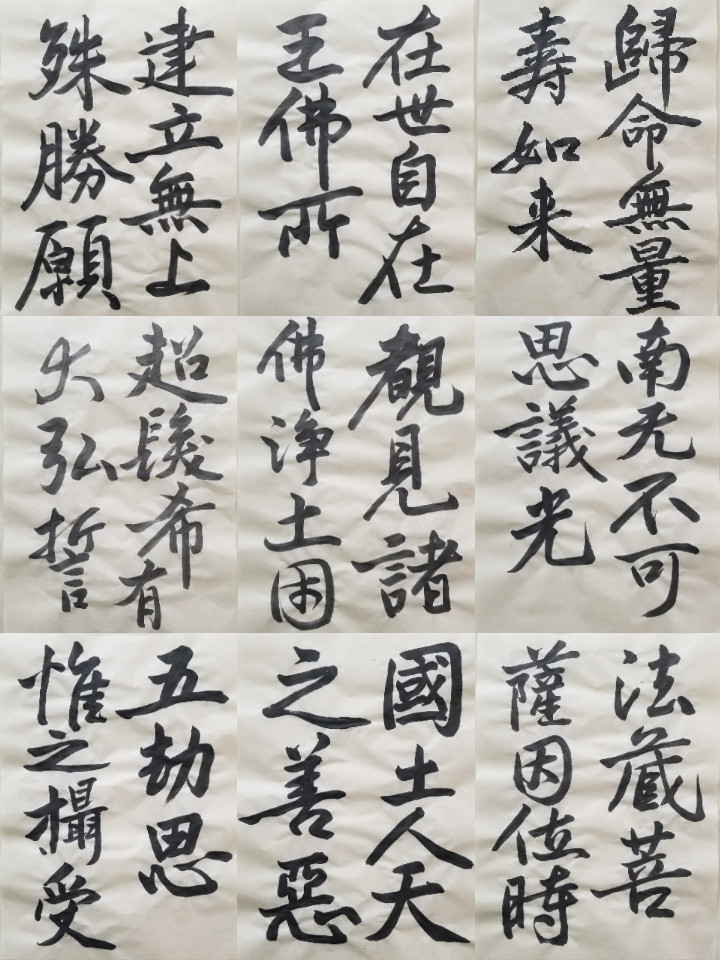 歸命無量
壽如来
南无不可
思議光
法蔵菩
薩因位時
在世自在
王佛所
覩見諸
佛浄土因
國土人天
之善惡
建立無上
殊勝願
超發希有
大弘誓
五劫思
惟之攝受